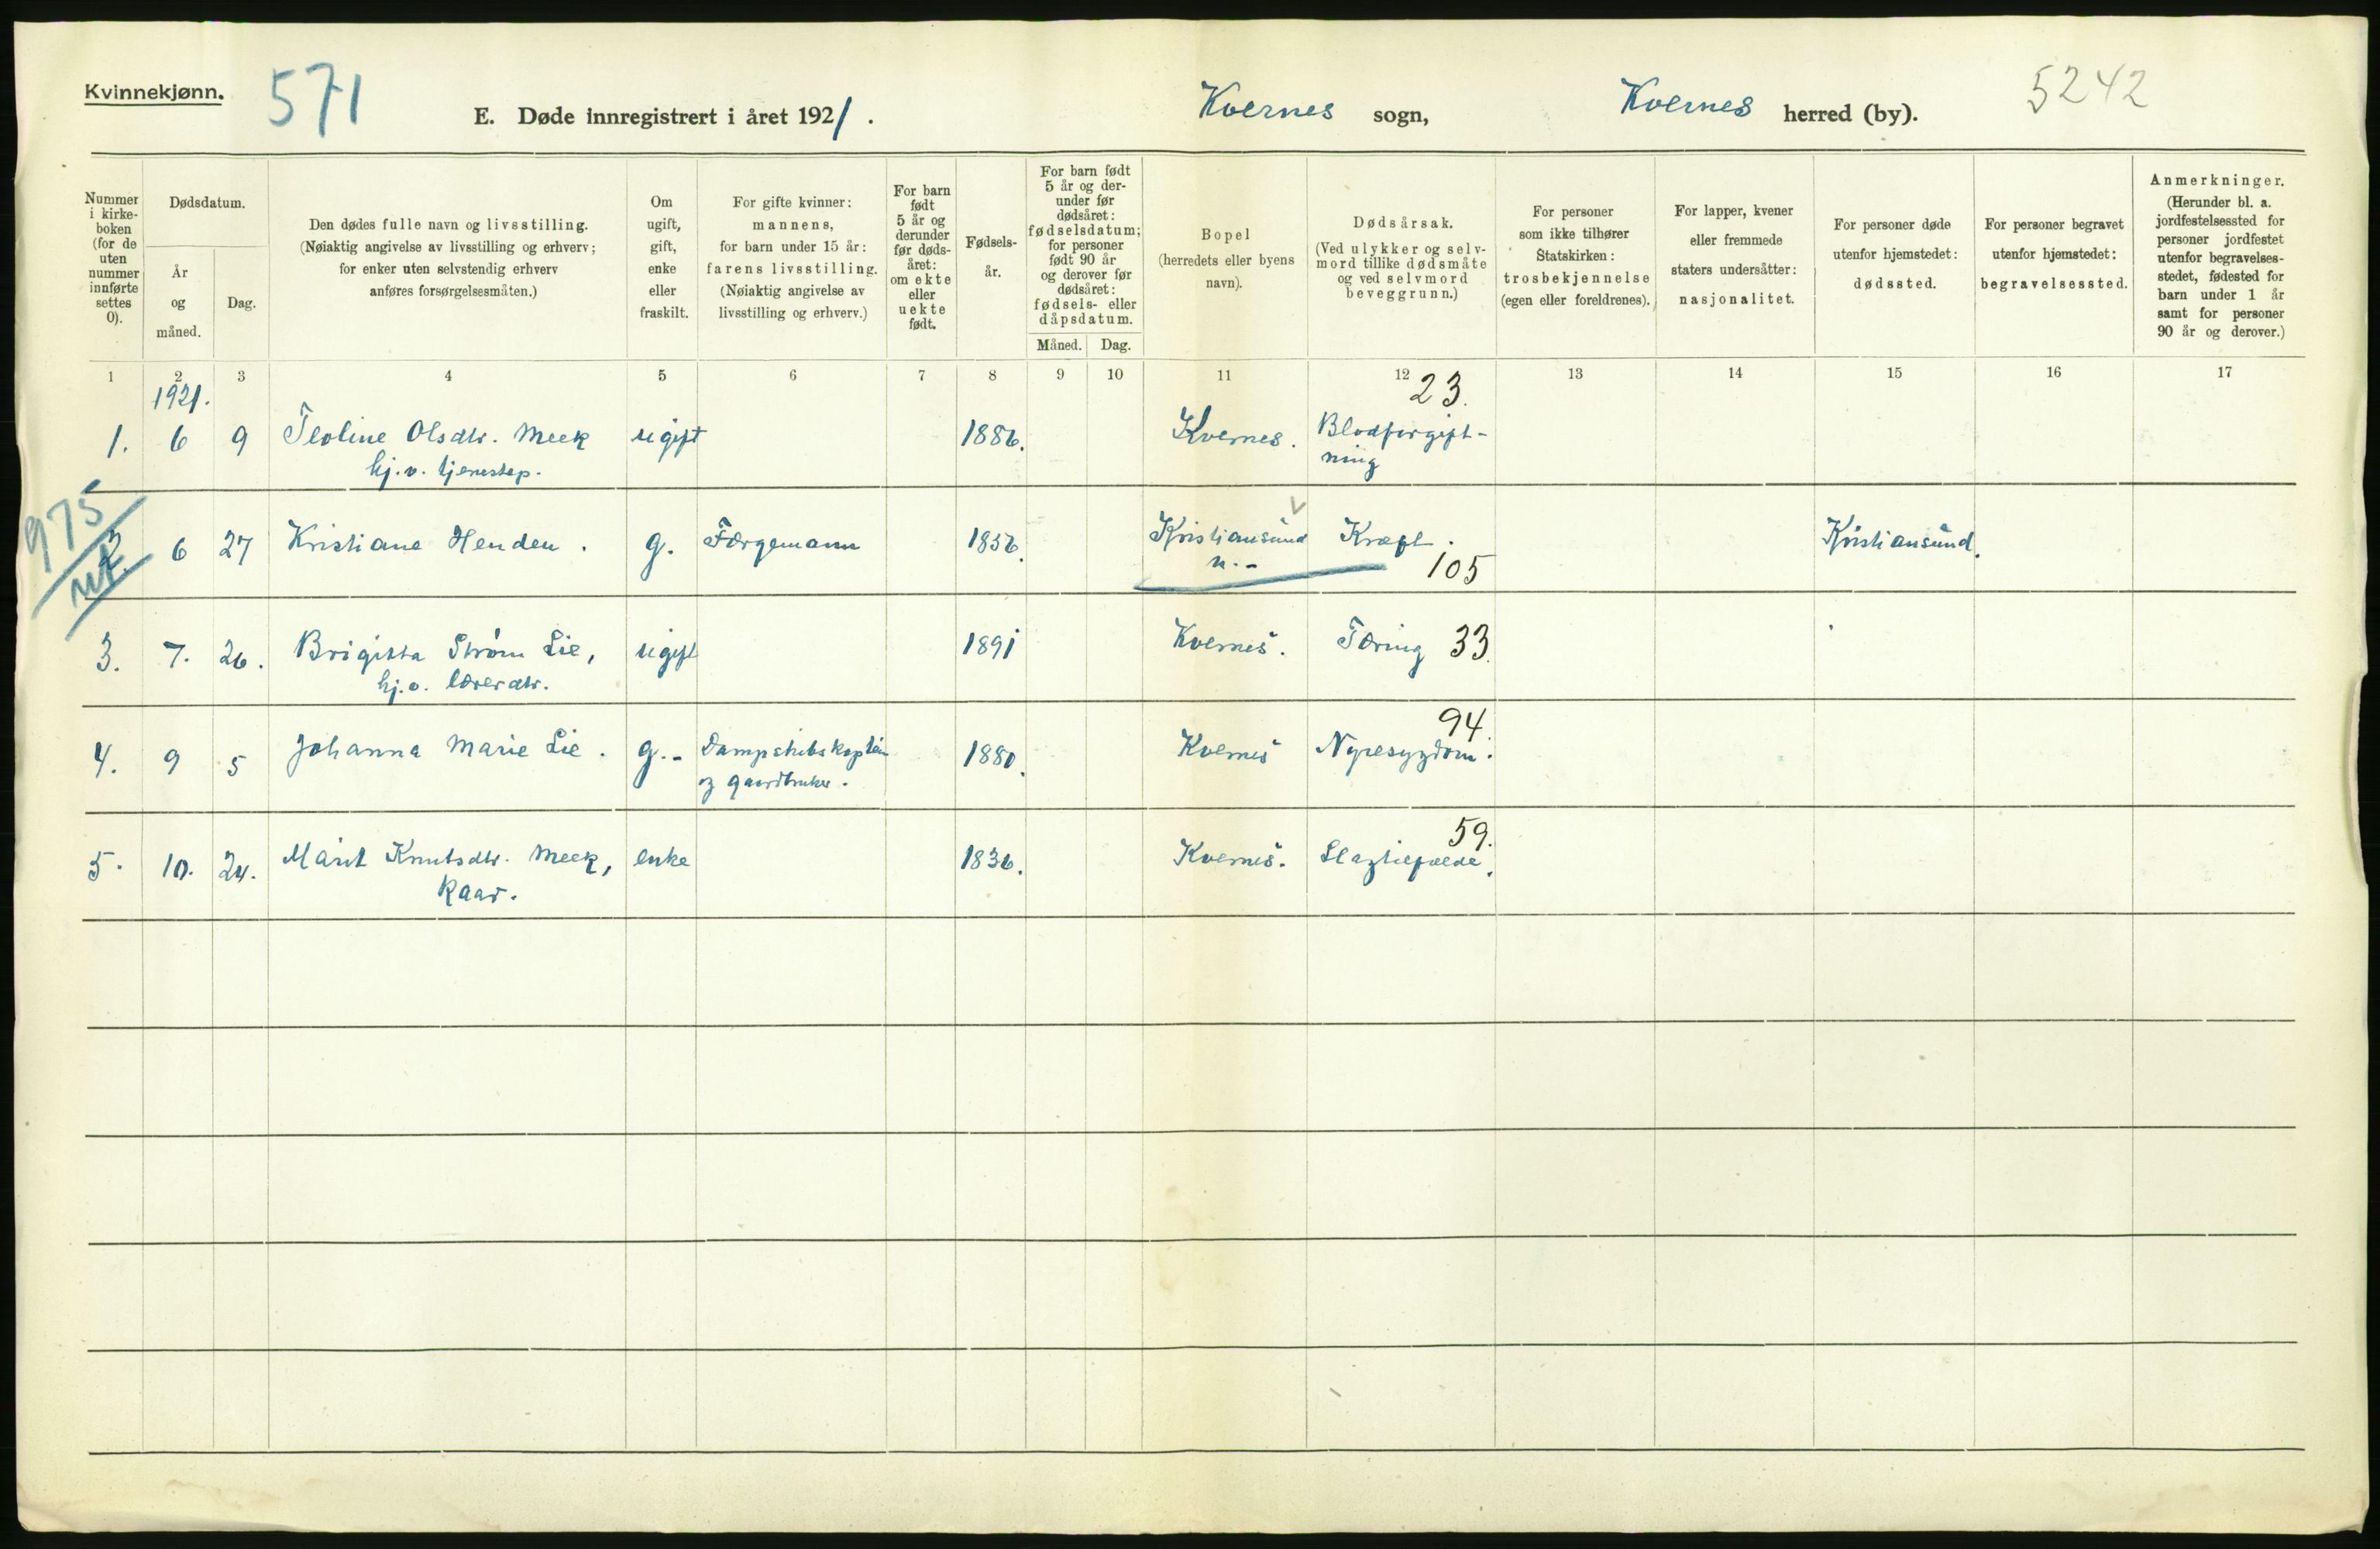 Kvinnekjønn.
571
E. Døde innregistrert i året 1921.
Kvernes sogn,
Kvernes herred (by).
5242
Nummer i kirke-boken (for de uten nummer innførte settes 0).
Dødsdatum.
År og måned.
Dag.
Den dødes fulle navn og livsstilling.
(Nøiaktig angivelse av livsstilling og erhverv;
for enker uten selvstendig erhverv
anføres forsørgelsesmåten.)
Om
ugift,
gift,
enke
eller
fraskilt.
For gifte kvinner:
mannens,
for barn under 15 år:
farens livsstilling.
(Nøiaktig angivelse av
livsstilling og erhverv.)
For barn
født
5 år og
derunder
før døds-
året:
om ekte
eller
uekte
født.
Fødsels-
år.
For barn født
5 år og der-
under før
dødsåret:
fødselsdatum;
for personer
født 90 år
og derover før
dødsåret:
fødsels- eller
dåpsdatum.
Måned. Dag.
Bopel
(herredets eller byens
navn).
Dødsårsak.
(Ved ulykker og selv-
mord tillike dødsmåte
og ved selvmord
beveggrunn.)
For personer
som ikke tilhører
Statskirken:
trosbekjennelse
(egen eller foreldrenes).
For lapper, kvener
eller fremmede
staters undersåtter:
nasjonalitet.
For personer døde
utenfor hjemstedet:
dødssted.
For personer begravet
utenfor hjemstedet:
begravelsessted.
Anmerkninger.
(Herunder bl. a.
jordfestelsessted for
personer jordfestet
utenfor begravelses-
stedet, fødested for
barn under 1 år
samt for personer
90 år og derover.)
1 2 3 4 5 6 7 8 9 10 11 12 13 14 15 16 17
1921. 23.
1. 6 9 Oldsdtr. Meek ugift 1886. Kvernes. Blodforgift-
hj. v. tjenestep. ning
975
2. 6 27 Kristiane Henden. g. Færgemann 1856. Kristiansund Kræft. Kristiansund.
n.- 105
3. 7. 26. Brigitta Strøm Lie, ugift 1891 Kvernes. Tæring 33.
hj. v. lærerdtr.
94.
4. 9 5 Johanna Marie Lie. g.- Dampskibskaptein 1880. Kvernes Nyresygdom.
og gaardbruker.
59.
5. 10. 24. Marit Knutsdtr. Meek, enke 1836. Kvernes. Slagtilfælde.
Kaar.